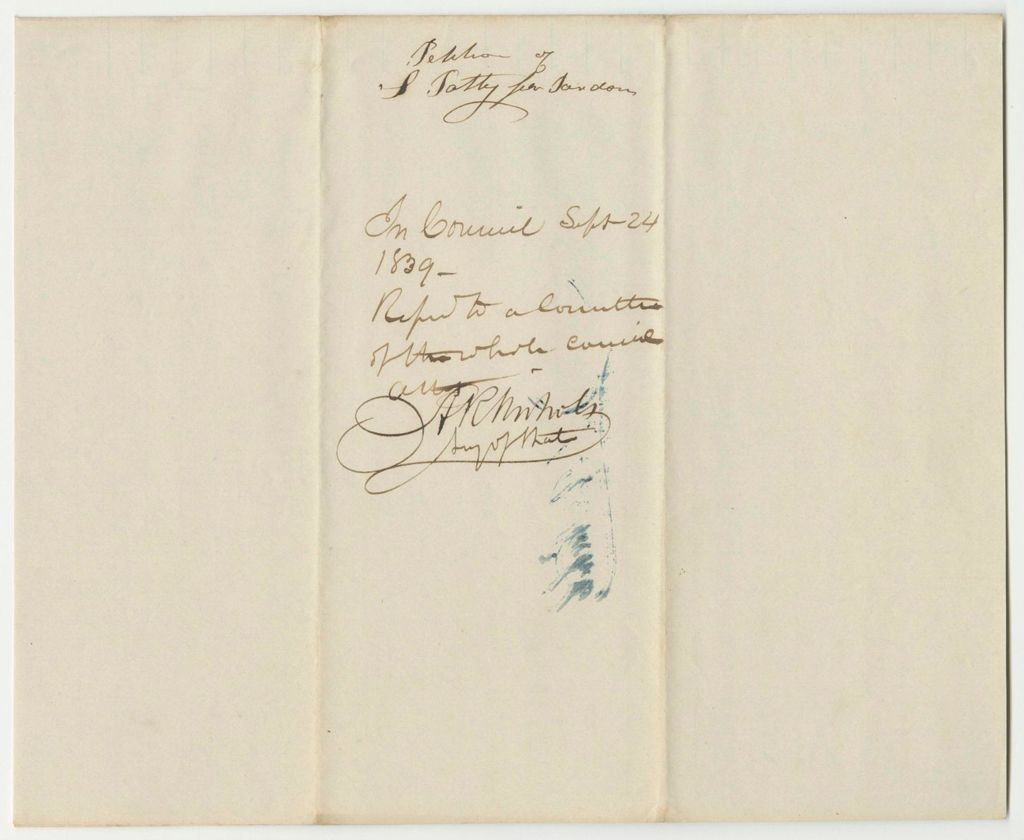 Petition of
S Patty for Pardon
In Council Sept 24
1839 -
Refrd to a Committee
of the whole Council
att
A R Nichols
Secy of State